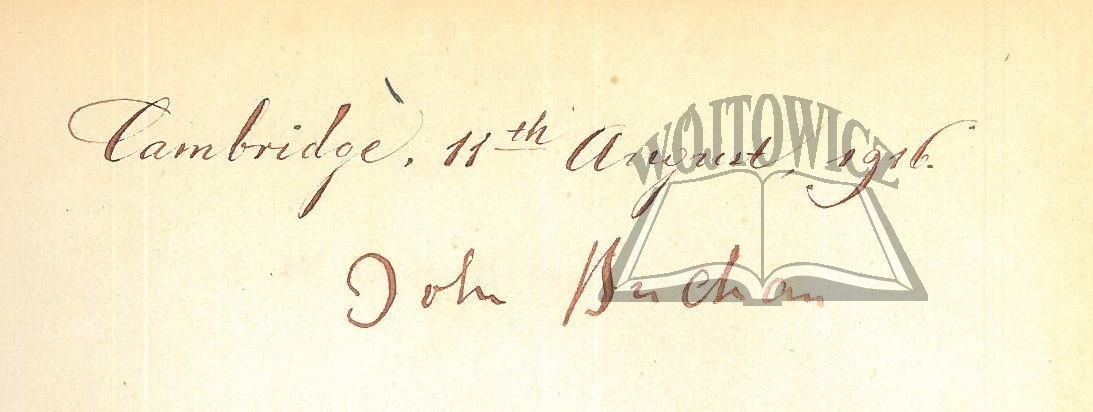 Cambridge, 11th August, 1916.
John Buchan
WOJTOWICZ